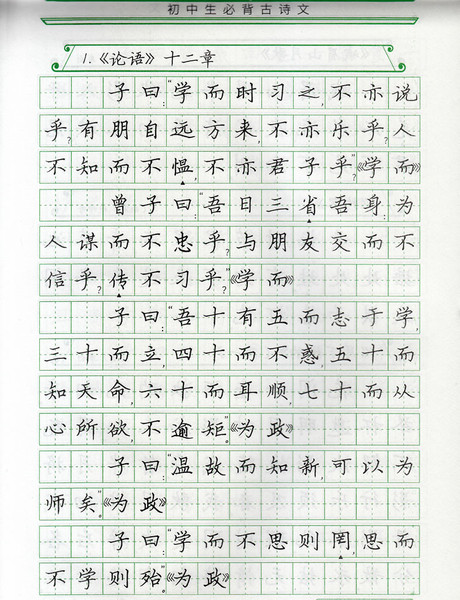 初中生必背古诗文
1.《论语》十二章
子曰:“学而时习之,不亦说
乎?有朋自远方来,不亦乐乎?人
不知而不愠,不亦君子乎?”《学而》
曾子曰:“吾日三省吾身:为
人谋而不忠乎?与朋友交而不
信乎?传不习乎?”《学而》
子曰:“吾十有五而志于学,
三十而立,四十而不惑,五十而
知天命,六十而耳顺,七十而从
心所欲,不逾矩。”《为政》
子曰:“温故而知新,可以为
师矣。”《为政》
子曰:“学而不思则罔,思而
不学则殆。”《为政》